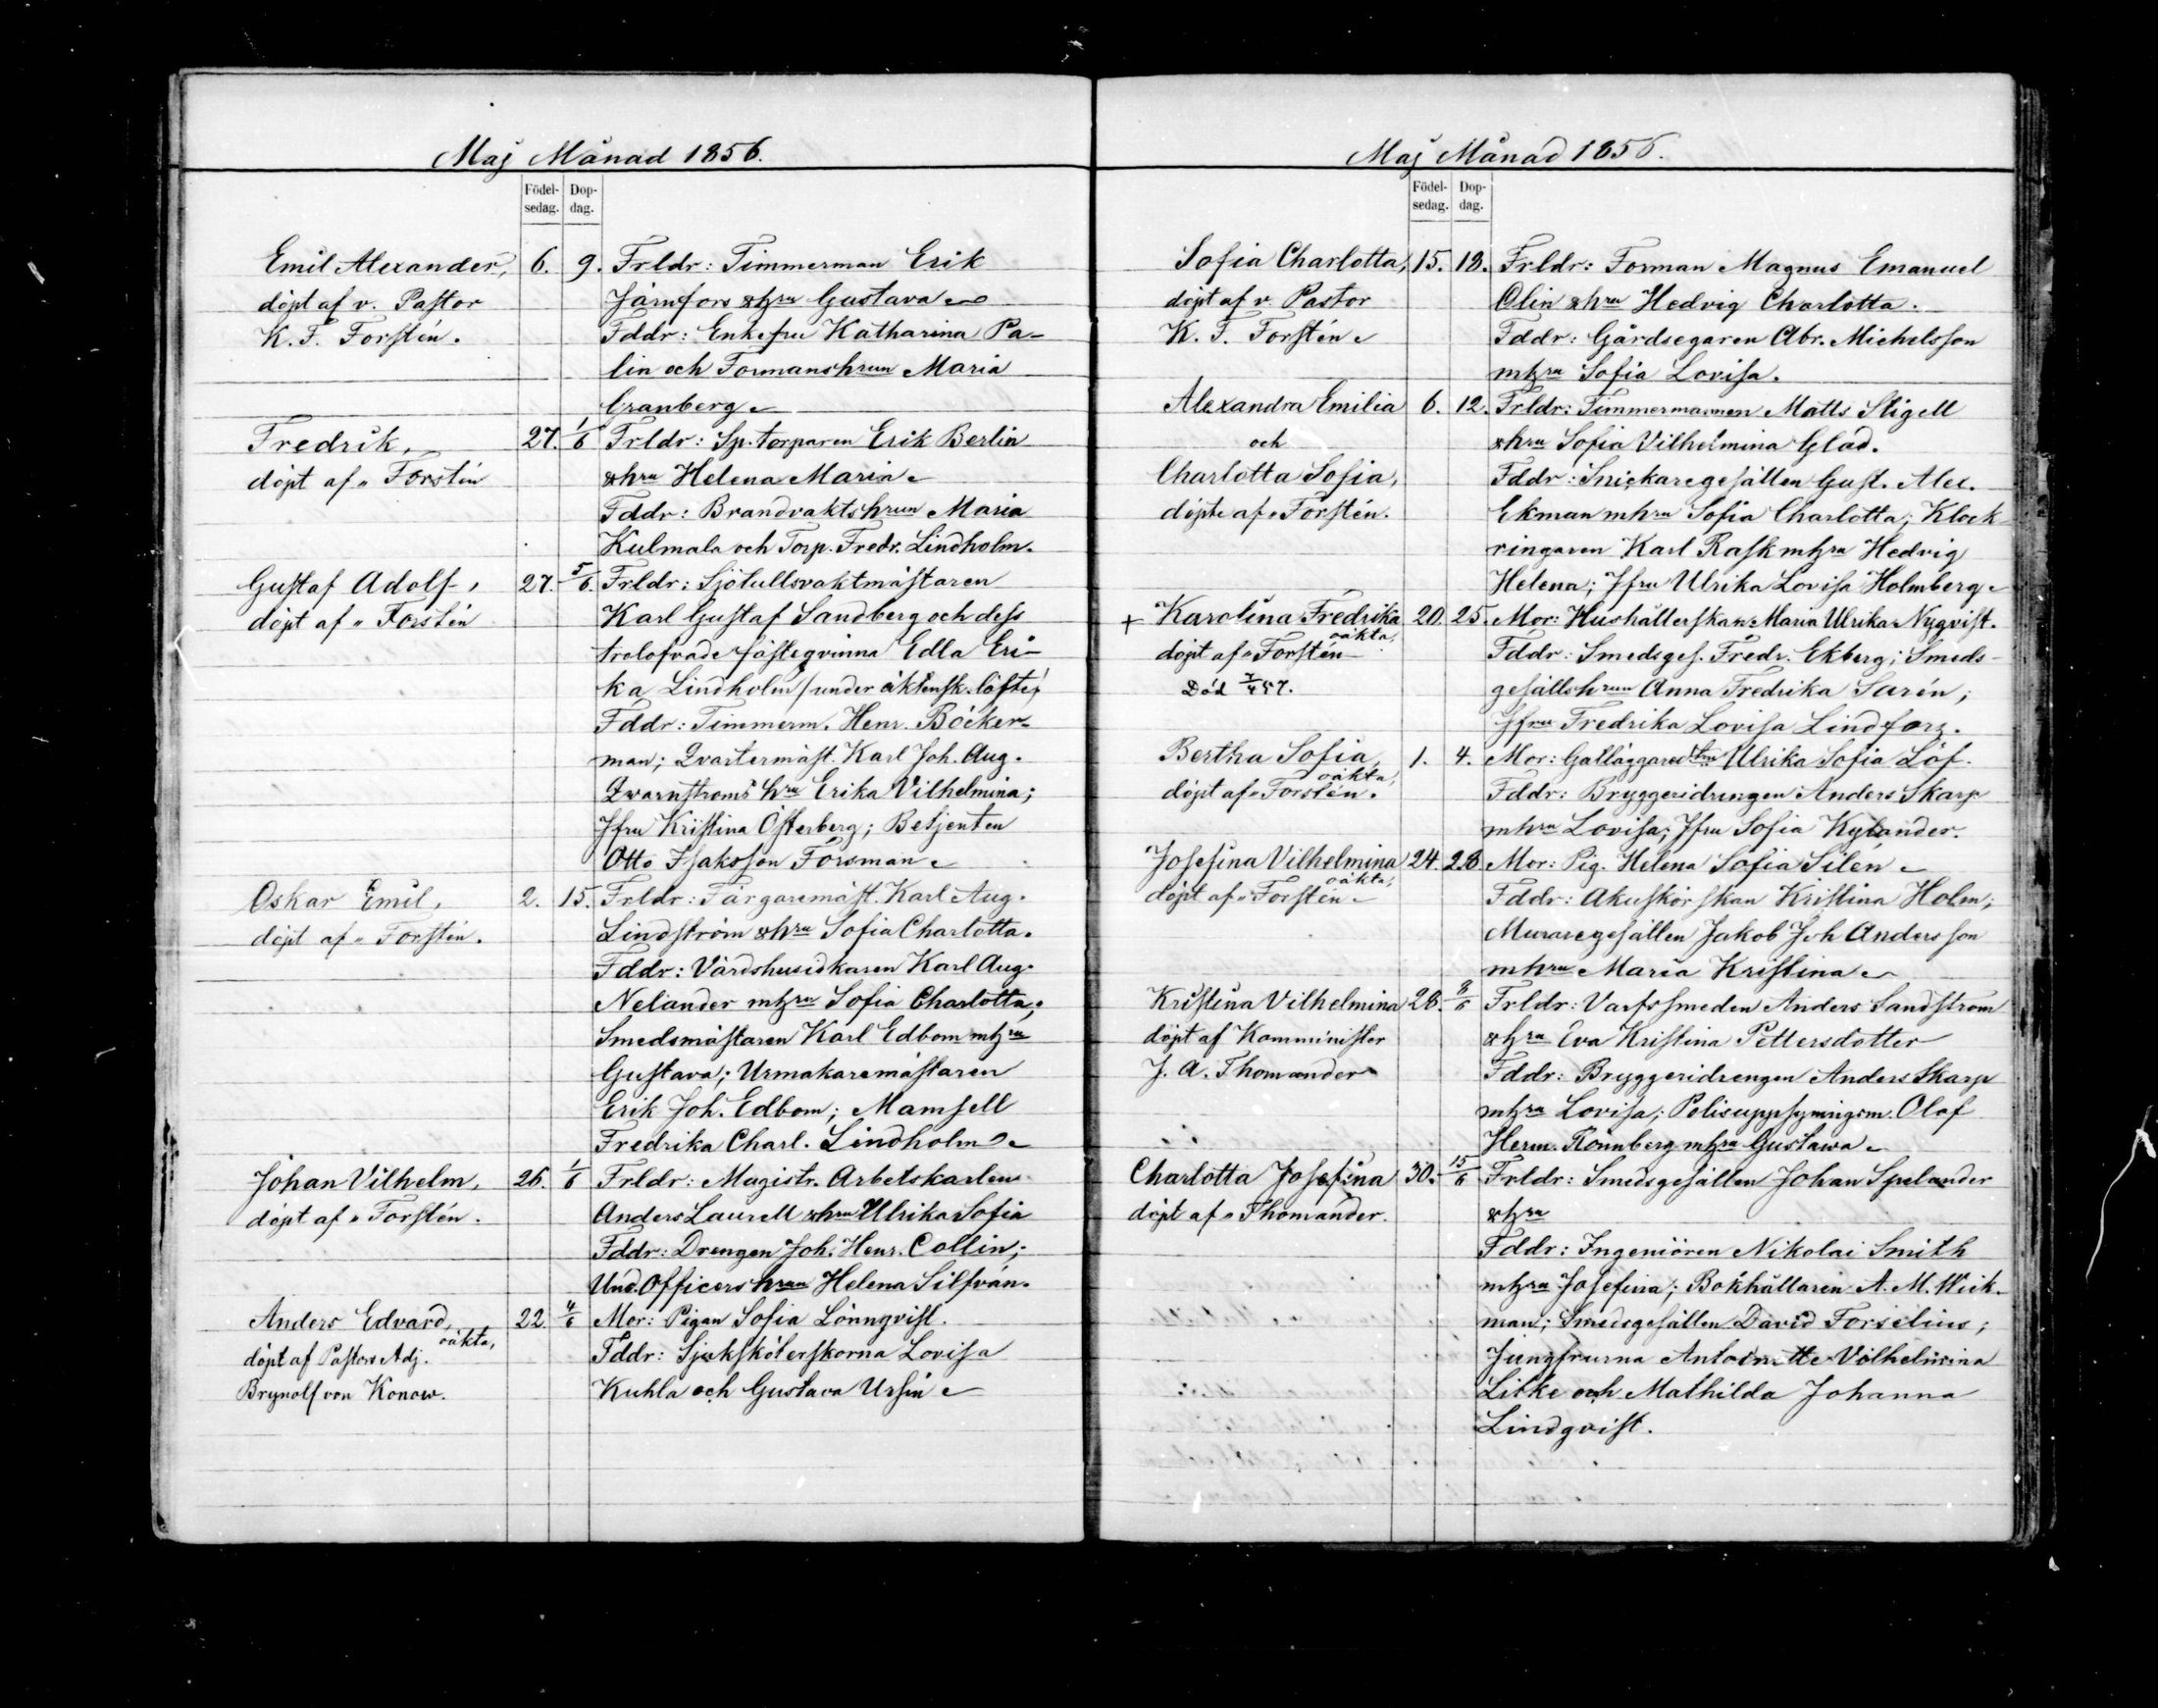 Maj Månad 1856.
Födel- Dop-
sedag. dag.
Emil Alexander, 6. 9. Frldr: Timmerman Erik
döpt af v. Pastor Järnfors &hru Gustava
K. F. Forstén. Fddr: Enkefru Katharina Pa-
lin och Formanshrun Maria
Granberg
Fredrik, 27. 1/6 Frldr: Sp. torparen Erik Berlin
döpt af " Forstén &hru Helena Maria
Fddr: Brandvaktshrun Maria
Kulmala och Torp. Fredr. Lindholm.
Gustaf Adolf, 27. 5/6. Frldr: Sjötullsvaktmästaren
döpt af " Forstén Karl Gustaf Sandberg och dess
trolofvade fästeqvinna Edla Eri-
ka Lindholm /under äktensk. löfte/
Fddr: Timmerm. Henr. Böcker-
man; Qvartermäst. Karl Joh. Aug.
Qvarnströms hru Erika Vilhelmina;
Jfru Kristina Österberg; Betjenten
Otto Isaksson Forsman
Oskar Emil, 2. 15. Frldr: Färgaremäst. Karl Aug.
döpt af " Forstén. Lindström &hru Sofia Charlotta.
Fddr: Värdshusidkaren Karl Aug.
Nelander mhru Sofia Charlotta;
Smedsmästaren Karl Edbom mhru
Gustava; Urmakaremästaren
Erik Joh. Edbom; Mamsell
Fredrika Charl. Lindholm
Johan Vilhelm, 26. 1/6 Frldr: Magistr. Arbetskarlen
döpt af " Forstén. Anders Laurell &hru Ulrika Sofia
Fddr: Drengen Joh. Henr. Collin;
Und. Officershrun Helena Silfván.
Anders Edvard, 22. 4/6 Mor: Pigan Sofia Lönnqvist.
oäkta,
döpt af Pastors Adj. Fddr: Sjuksköterskorna Lovisa
Brynolf von Konow. Kuhla och Gustava Ursin
Maj Månad 1856.
Födel- Dop-
sedag. dag.
Sofia Charlotta, 15. 18. Frldr: Forman Magnus Emanuel
döpt af v. Pastor Olin &hru Hedvig Charlotta.
K. F. Forstén Fddr: Gårdsegaren Abr. Michelsson
mhru Sofia Lovisa.
Alexandra Emilia 6. 12. Frldr: Timmermannen Matts Stigell
och &hru Sofia Vilhelmina Glad.
Charlotta Sofia, Fddr: Snickaregesällen Gust. Alex.
döpte af " Forstén. Ekman mhru Sofia Charlotta; Klock-
ringaren Karl Rask mhru Hedvig
Helena; Jfru Ulrika Lovisa Holmberg
+ Karolina Fredrika 20. 25. Mor: Hushållerskan Maria Ulrika Nyqvist.
oäkta,
döpt af " Forstén Fddr: Smedsges. Fredr. Ekberg; Smeds-
Död 7/4 57. gesällshrun Anna Fredrika Sarén;
Jfru Fredrika Lovisa Lindfors.
Bertha Sofia, 1. 4. Mor: Gatläggare Ulrika Sofia Löf.
oäkta,
döpt af " Forstén. Fddr: Bryggeridrengen Anders Skarp
mhru Lovisa; Jfru Sofia Kylander.
Josefina Vilhelmina 24. 28. Mor: Pig. Helena Sofia Silén
oäkta,
döpt af " Forstén Fddr: Akuskörskan Kristina Holm;
Muraregesällen Jakob Joh Andersson
mhru Maria Kristina
Kristina Vilhelmina 28. 8/6 Frldr: Varfssmeden Anders Sandström
döpt af Komminister &hru Eva Kristina Pettersdotter
J. A. Thomander Fddr: Bryggeridrengen Anders Skarp
mhru Lovisa; Polisuppsyningsm. Olof
Herm. Rönnberg mhru Gustawa
Charlotta Josefina 30. 15/6 Frldr: Smedsgesällen Johan Spelander
döpt af " Thomander. &hru
Fddr: Ingeniören Nikolai Smith
mhru Josefina; Bokhållaren A. M. Wick-
man; Smedsgesällen David Forselius;
Jungfrurna Antoinette Vilhelmina
Litke och Mathilda Johanna
Lindqvist.